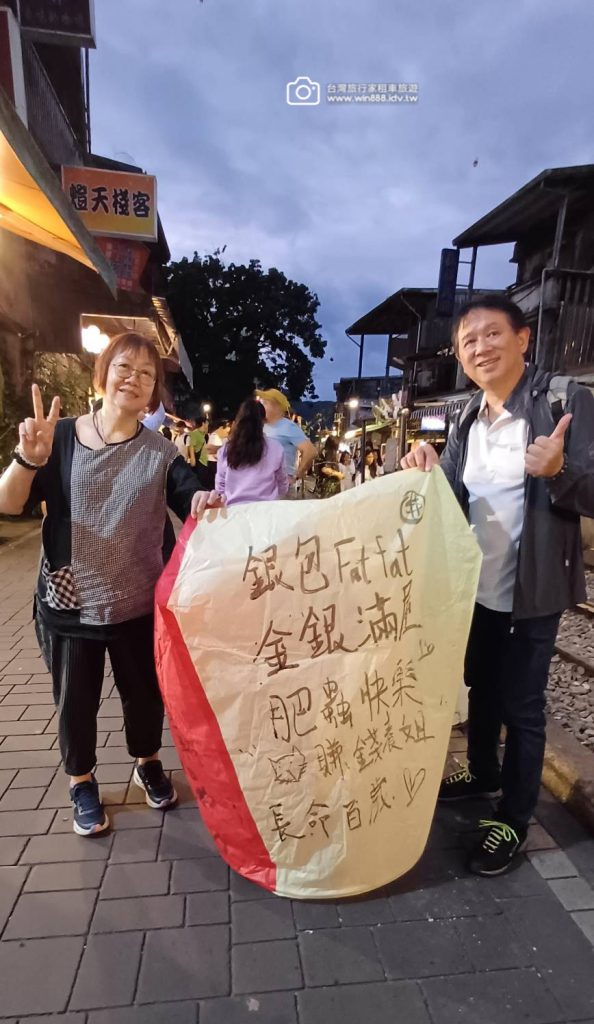 台灣旅行家租車旅遊
www.win888.idv.tw
燈天棧客
銀包Fat fat
金銀滿屋
肥蟲快樂
賺錢養姐
長命百歲